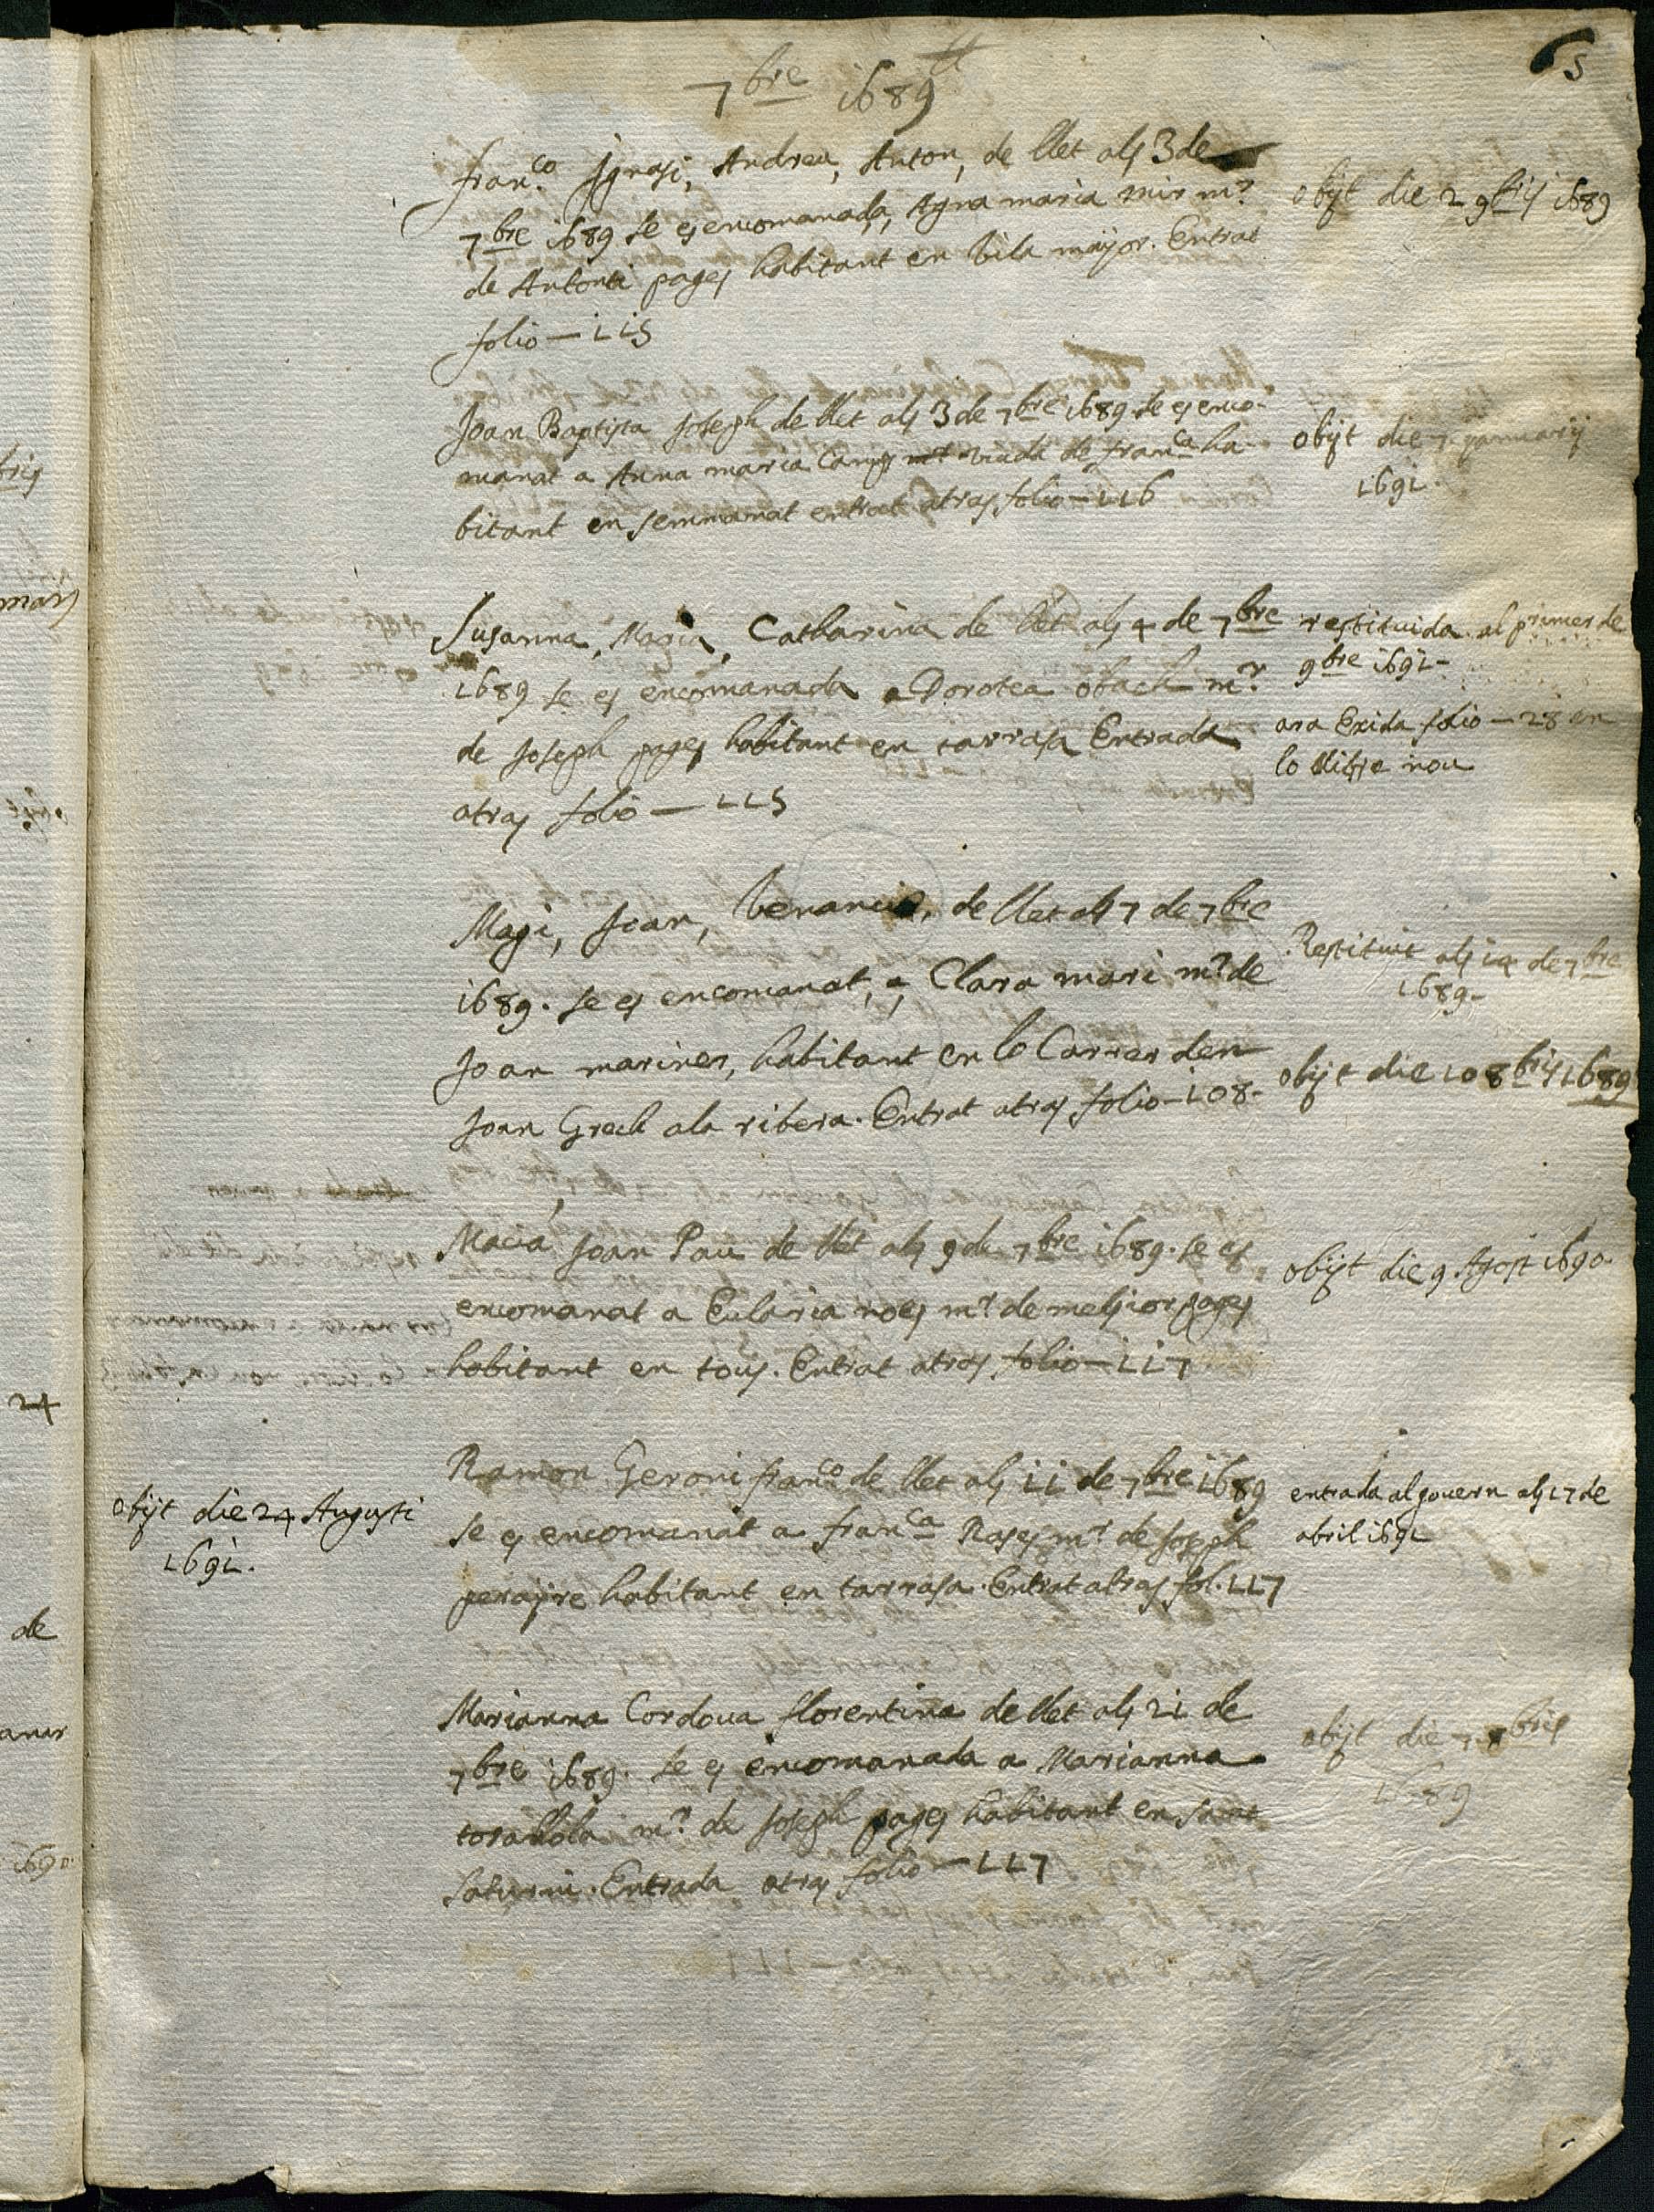 65
7bre 1689
franco Ignasi, Andreu, Anton, de llet als 3 de
7bre 1689 se es encomanada, Agna maria mir mr
de Antoni pages habitant en Vila mayor. Entrat
folio — 115
obijt die 2 9bris 1689
Joan Baptista Joseph de llet als 3 de 7bre 1689. se es enco-
manat a Anna maria Camps viuda de franca ha-
bitant en semmanat entrat atras folio — 116
obijt die 7 januarij
1691.
Susanna, Magia, Catharina de llet als 4 de 7bre
1689 se es encomanada a Dorotea obach mr
de Joseph pages habitant en tarrasa Entrada
atras folio — 115
restituida al primer de
9bre 1691-
ara Exida folio — 28 en
lo llibre nou
Magi, Joan, Venancio, de llet als 7 de 7bre
1689. se es encomanat, a, Clara mari mr de
Joan mariner, habitant en lo Carrer den
Joan Grech a la ribera. Entrat atras folio — 108-
Restituit als 14 de 7bre
1689-
obijt die 10 8bris 1689
Macia Joan Pau de llet als 9 de 7bre 1689. se es
encomanat a Eularia noes mr de melsior pages
habitant en tous. Entrat atras folio — 117
obijt die 9 Agost 1690.
Ramon Geroni franco de llet als 11 de 7bre 1689
se es encomanat a franca Roses mr de Joseph
perayre habitant en tarrasa. Entrat atras fol. 117
entrada al govern als 17 de
abril 1691
obijt die 24 Augusti
1691.
Marianna Cordoua florentina de llet als 21 de
7bre 1689. se es encomanada a Marianna
torallola mr de Joseph pages habitant en sant
saturni. Entrada atras folio — 117
obijt die 7 bris
1689